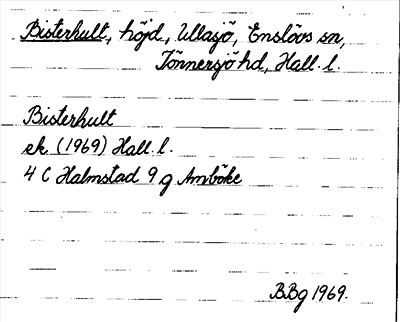 Bisterhult, höjd, Ullasjö, Enslövs sn,
Tönnersjö hd, Hall. l.
Bisterhult
ek. (1969) Hall. l.
4 C Halmstad 9 g Amböke
BBg 1969.